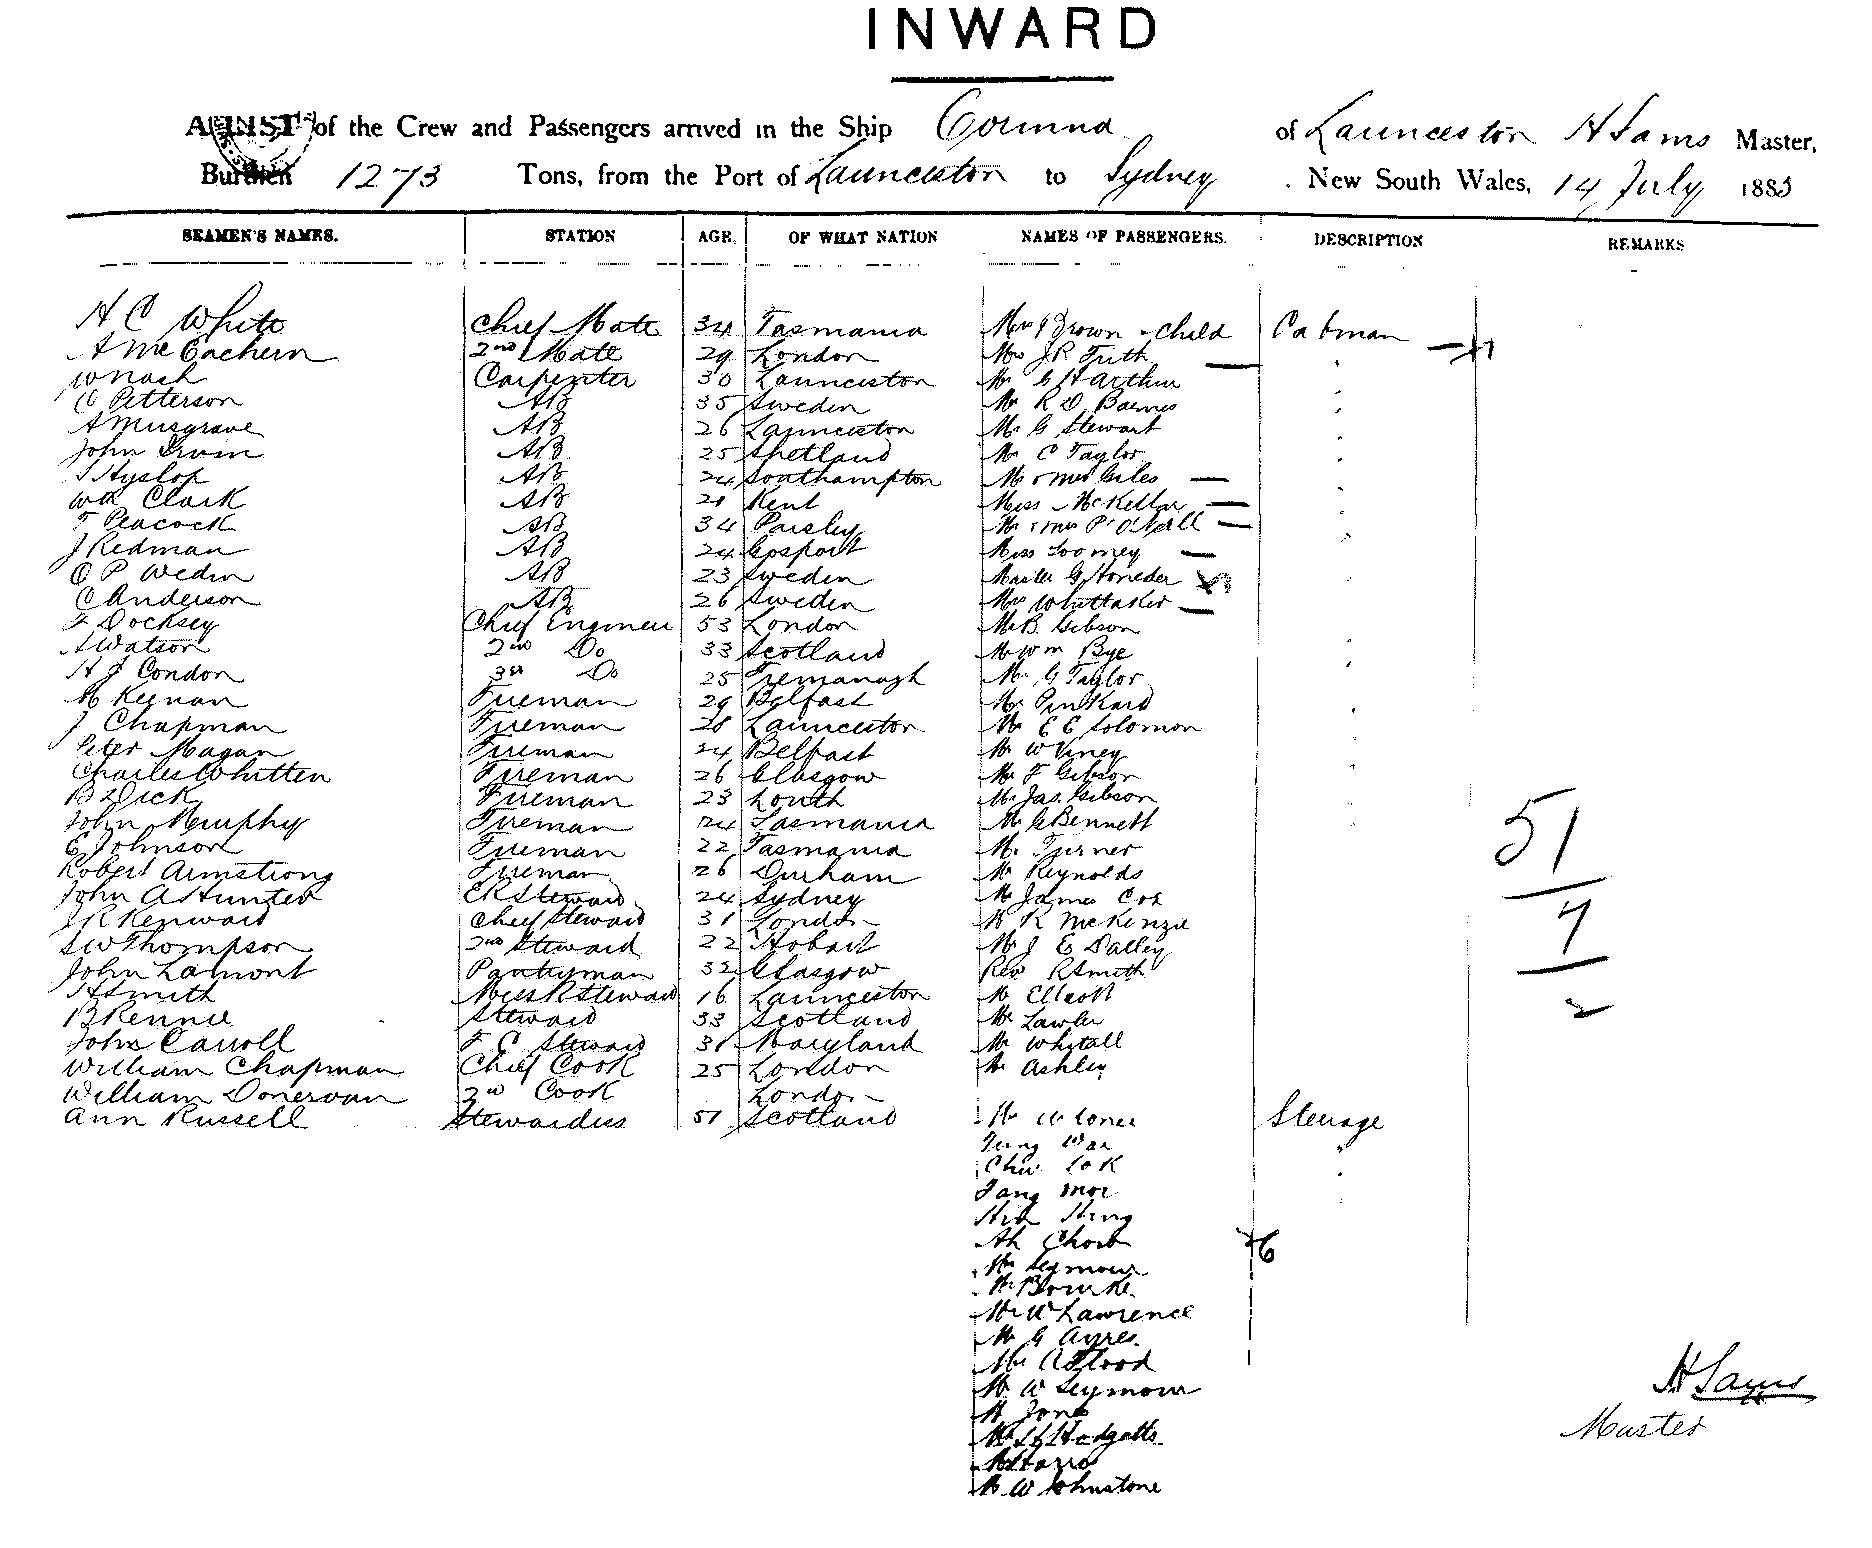 INWARD
A LIST of the Crew and Passengers arrived in the Ship Corinna of Launceston H Sams Master,
Burthen 1273 Tons, from the Port of Launceston to Sydney New South Wales, 14 July 1885
SEAMEN'S NAMES. STATION AGE. OF WHAT NATION NAMES OF PASSENGERS. DESCRIPTION REMARKS
H C White Chief Mate 34 Tasmania Mrs Brown & child Cabman
A McEachern 2nd Mate 29 London Mrs J R Frith
W Nash Carpenter 30 Launceston Mr G H Arthur
C Petterson AB 35 Sweden Mr R D Barnes
A Musgrave AB 26 Launceston Mr G Stewart
John Irvin AB 25 Shetland Mr C Taylor
J Hyslop AB 24 Southampton Mr & Mrs Giles
Wm Clark AB 21 Kent Miss McKellar
T Peacock AB 34 Paisley Mr & Mrs P O'Neill
J Redman AB 24 Gosport Miss Toomey
C P Wedin AB 23 Sweden Master G
C Anderson AB 26 Sweden Mrs Whittaker
F Docksey Chief Engineer 53 London Mr B. Gibson
A Watson 2nd Do 33 Scotland Mr Wm Bye
H J Condon 3rd Do 25 Fremanagh Mr G Taylor
M Keenan Fireman 29 Belfast Mr Pinkard
J Chapman Fireman 28 Launceston Mr E E Solomon
Peter Magan Fireman 24 Belfast Mr W Viney
Charles Whitten Fireman 26 Glasgow Mr F Gibson
B Dick Fireman 23 Louth Mr Jas. Gibson
John Murphy Fireman 24 Tasmania Mr G Bennett
E Johnson Fireman 22 Tasmania Mr Turner
Robert Armstrong Fireman 26 Durham Mr Reynolds
John A Hunter E R Steward 24 Sydney Mr James Cox
J R Kenward Chief Steward 31 London Mr R McKenzie
S W Thompson 2nd Steward 22 Hobart Mr J E Dalley
John Lamont Pantryman 32 Glasgow Rev R Smith
H Smith Mess R Steward 16 Launceston Mr Elliott
B Rennie Steward 33 Scotland Mr Lawler
John Carroll F C Steward 31 Maryland Mr Whitall
William Chapman Chief Cook 25 London Mr Ashley
William Donervan 2nd Cook London
Ann Russell Stewardess 51 Scotland Mr Steerage
Tung Wan
Chu Lok
Fang Moe
Hing
Ah
Mr Seymour
Mr Bourke
Mr W Lawrence
Mr G Ayres
Mr A Flood
Mr W Seymour
Mr Jones
Mr Hodgetts
Mr W Johnstone
51
7
2
6
H Sams
Master